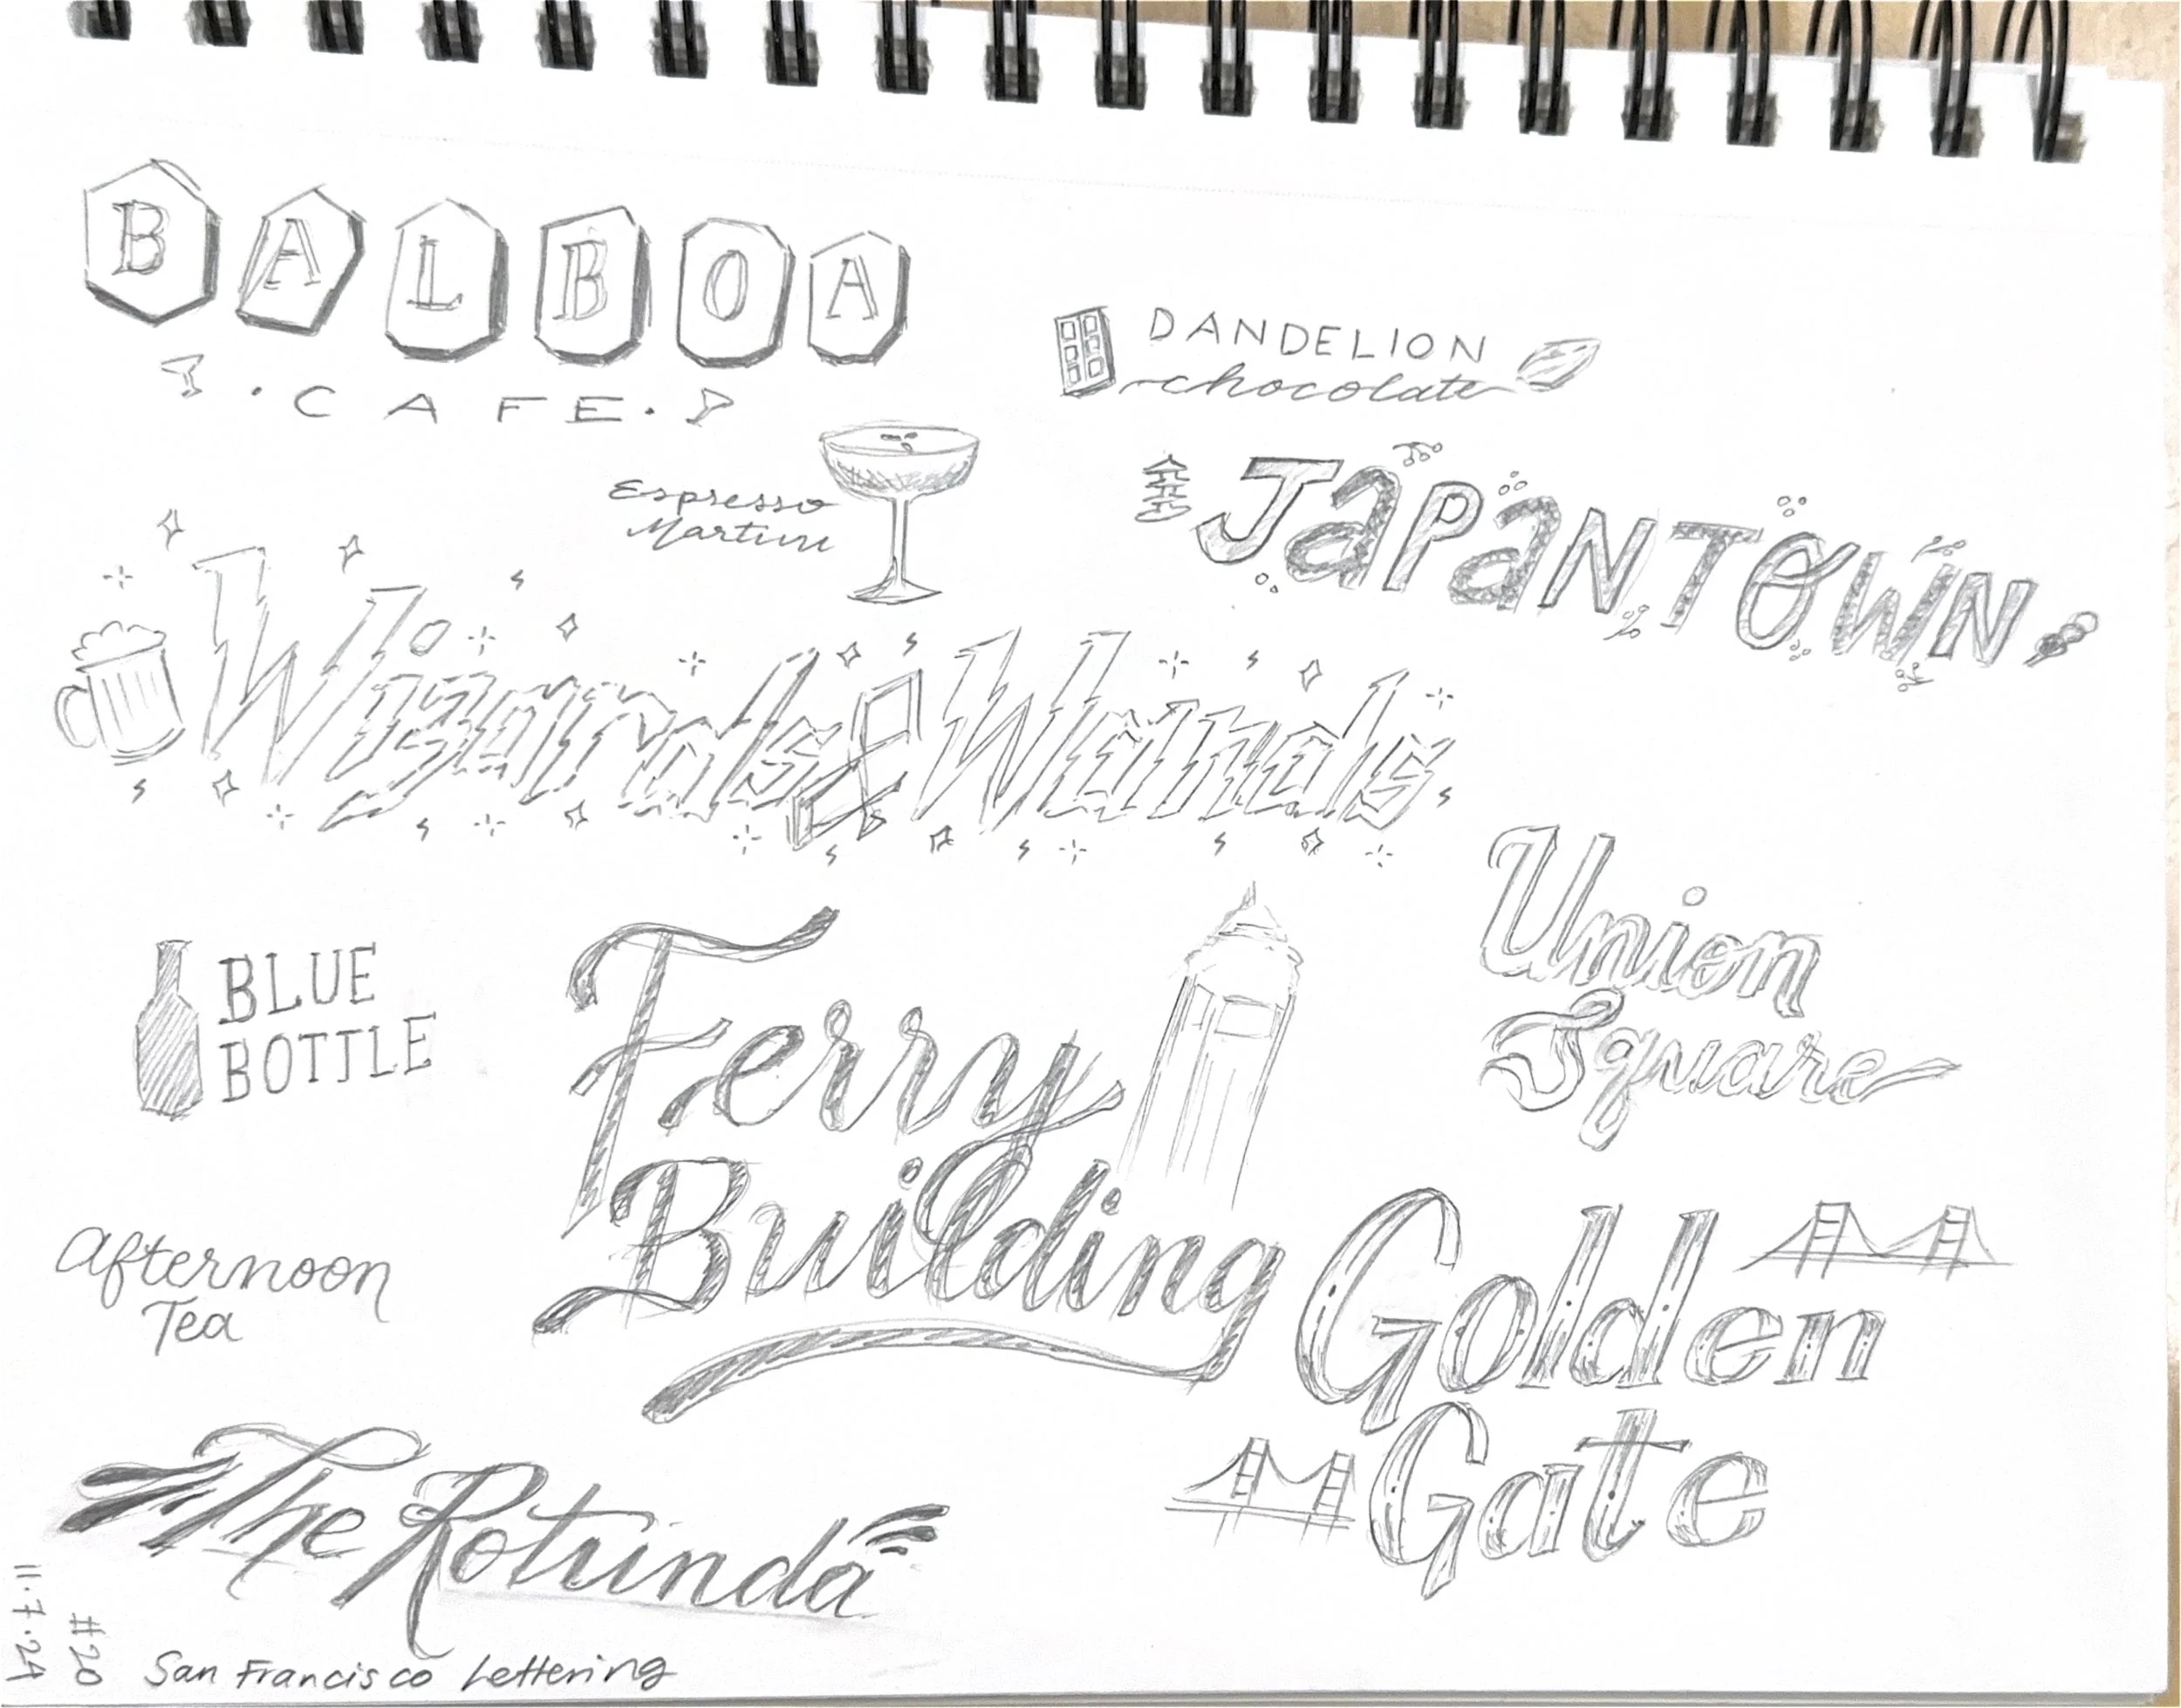 BALBOA
· CAFE ·
DANDELION
chocolate
Espresso
Martini
JAPANTOWN
Wizards & Wands
Union
Square
BLUE
BOTTLE
Ferry
Building
Afternoon
Tea
Golden
Gate
The Rotunda
11.7.24
#20
San Francisco Lettering